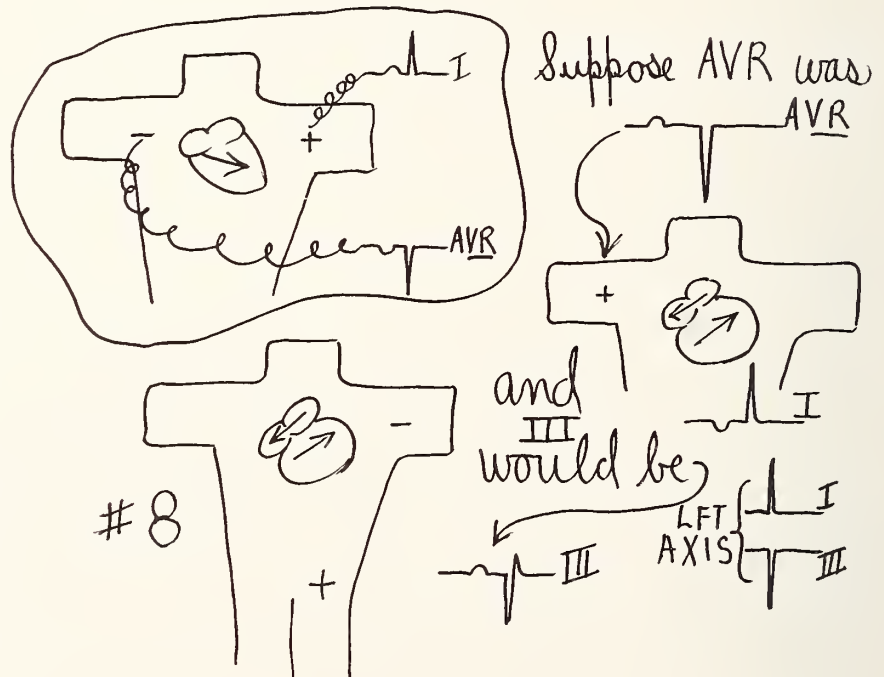 I
- +
AVR
Suppose AVR was
AVR
+
I
and
III
would be
III
#8
-
+
LFT
AXIS
I
III